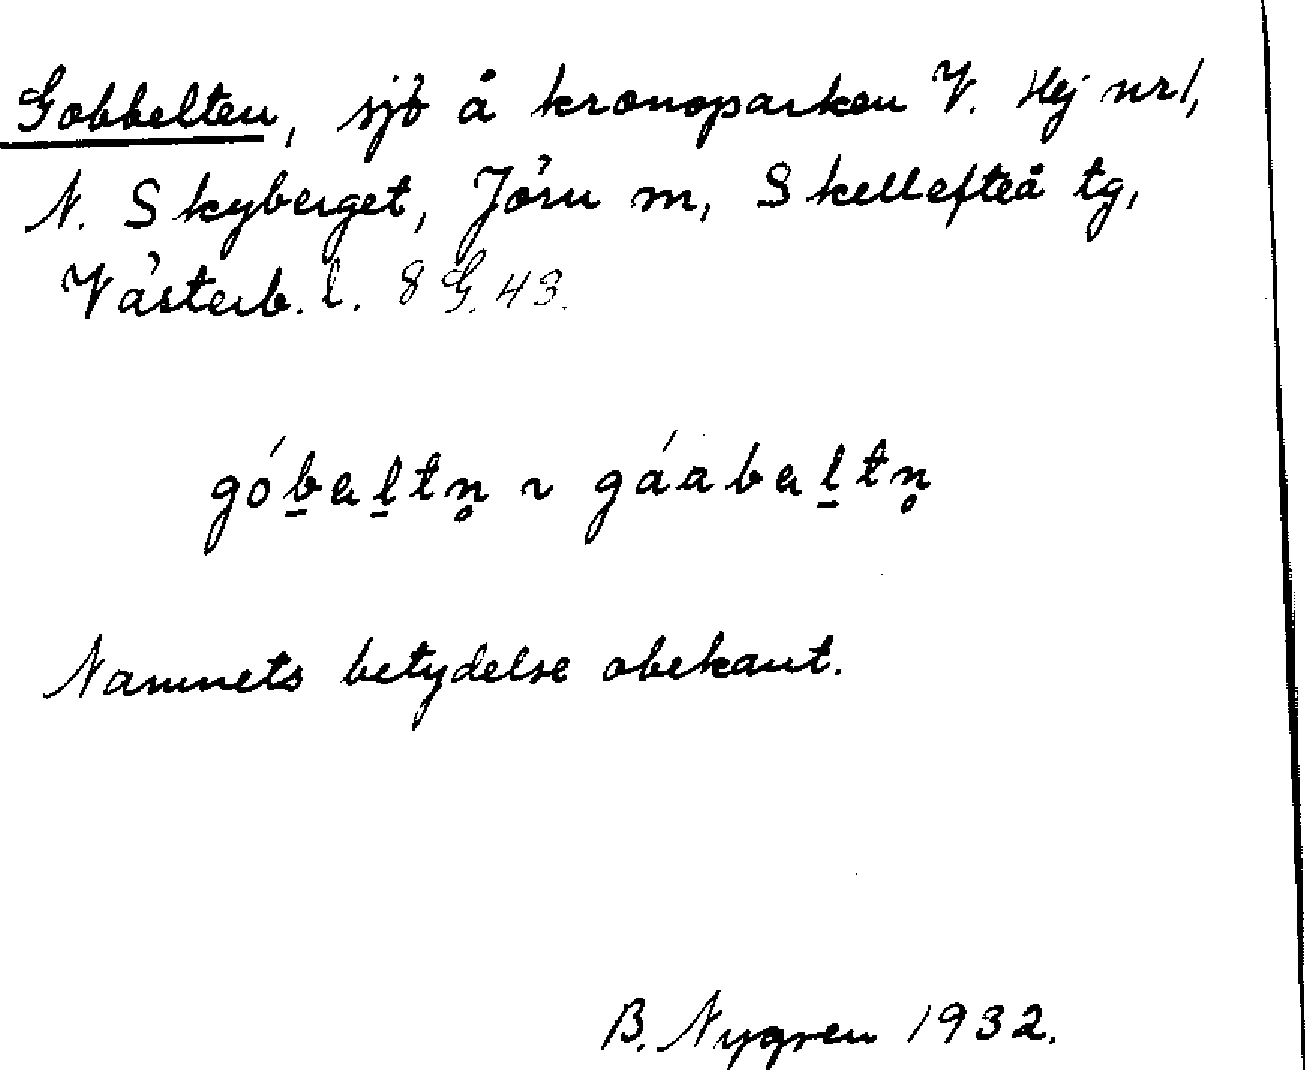 Gobbelten, sjö å kronoparken V. Hej nr 1,
N. Skyberget, Jörn m, Skellefteå tg,
Västerb. l. 8 G. 43.
góbaltn̥ ~ gáabaltn̥
Namnets betydelse obekant.
B. Nygren 1932.